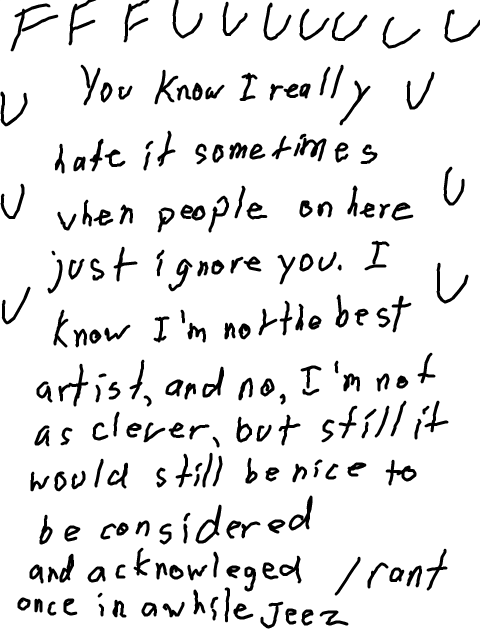 F F F U U U U U U U
U You know I really U
hate it sometimes
U when people on here U
just ignore you. I
U know I'm not the best U
artist, and no, I'm not
as clever, but still it
would still be nice to
be considered
and acknowleged /rant
once in awhile Jeez